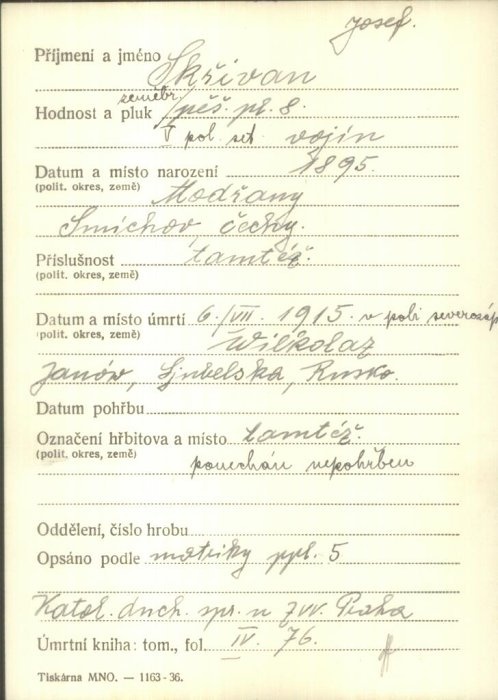 Josef.
Příjmení a jméno Skřivan
zeměbr.
Hodnost a pluk pěš. pl. 8.
V pol. set. vojín
Datum a místo narození 1895.
(polit. okres, země) Modřany
Smíchov, Čechy.
Příslušnost tamtéž.
(polit. okres, země)
Datum a místo úmrtí 6./VII. 1915. v poli severozáp
(polit. okres, země) Wilkolaz
Janów, Ljubelska, Rusko.
Datum pohřbu
Označení hřbitova a místo tamtéž.
(polit. okres, země)
ponechán nepohřben
Oddělení, číslo hrobu
Opsáno podle matriky ppl. 5
Katol. duch. spr. u zvv. Praha
Úmrtní kniha: tom., fol. IV. 76.
Tiskárna MNO. — 1163-36.